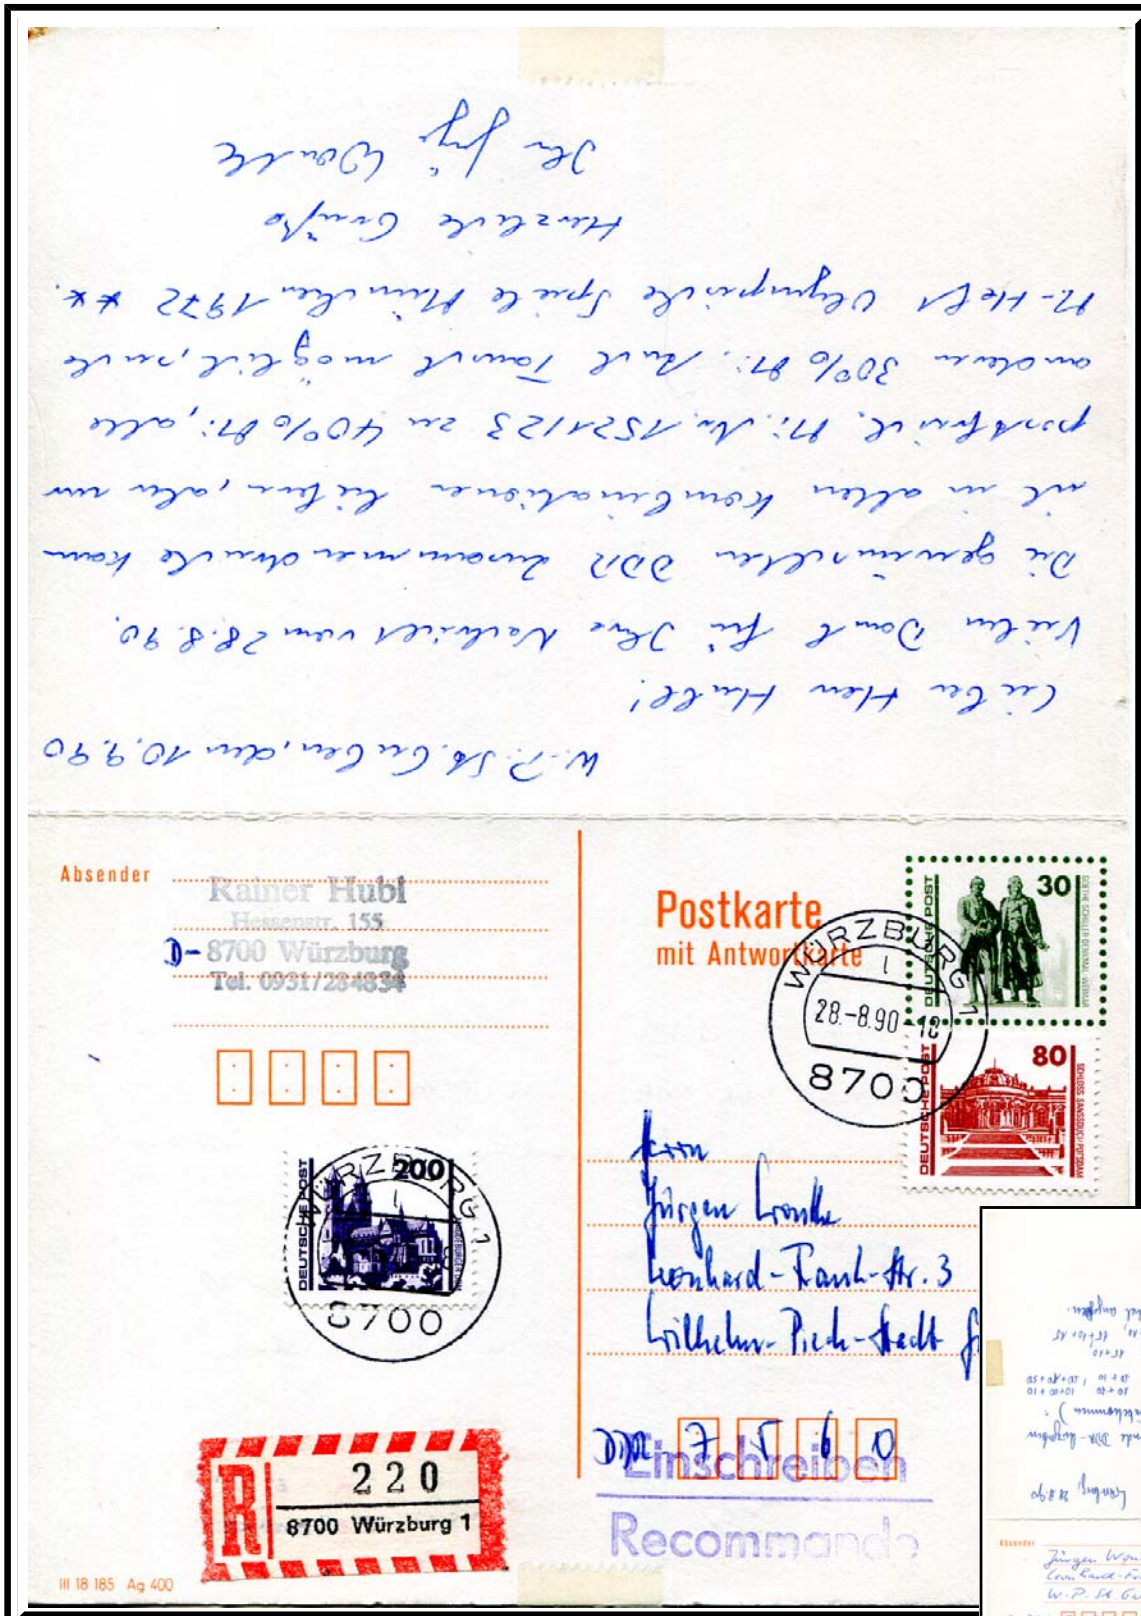 W.-P. St. Guben, den 10.9.90
Lieber Herr Hubl!
Vielen Dank für Ihre Nachricht vom 28.8.90.
Die gewünschten DDR Zusammendrucke kann
ich in allen Kombinationen liefern, aber nur
postfrisch. Mi. Nr. 1521/23 zu 40% Mi, alle
anderen 30% Mi. Auch Tausch möglich, suche
M-Heft Olympische Spiele München 1972 **.
Herzliche Grüße
Ihr Jürgen Wonke
Absender
Rainer Hubl
Hessenstr. 155
D-8700 Würzburg
Tel. 0931/284834
Postkarte
mit Antwortkarte
DEUTSCHE POST
30
GOETHE-SCHILLER-DENKMAL · WEIMAR
WÜRZBURG 1
l
28.-8.90-18
8700
DEUTSCHE POST
80
SCHLOSS SANSSOUCI · POTSDAM
DEUTSCHE POST
200
MAGDEBURGER DOM
WÜRZBURG 1
l
8700
Herrn
Jürgen Wonke
Leonhard-Frank-Str. 3
Wilhelm-Pieck-Stadt
DDR 7560
Einschreiben
Recommandé
R
220
8700 Würzburg 1
III 18 185 Ag 400
Würzburg, 28.8.90
DDR-Ausgaben
Absender
Jürgen
Leonhard-
W.-P. St.